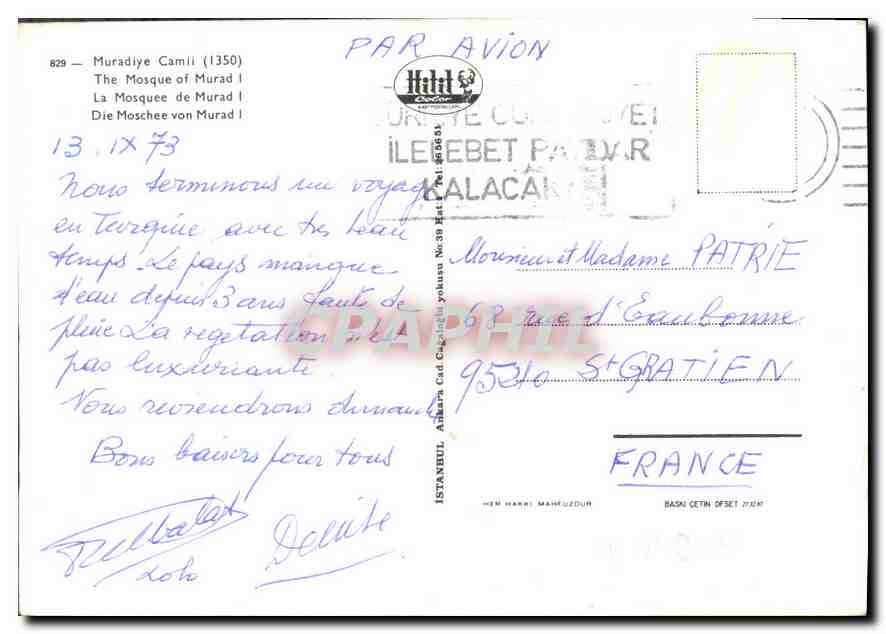 829 — Muradiye Camii (1350)
The Mosque of Murad I
La Mosquee de Murad I
Die Moschee von Murad I
PAR AVION
Hitit
Color
KARTPOSTALLARI
İLELEBET PAYİDAR
KALACAK
13.IX 73
Nous terminons un voyage
en Turquie avec très beau
temps. Le pays manque
d'eau depuis 3 ans faute de
pluie La vegetation n'est
pas luxuriante.
Nous reviendrons dimanche
Bons baisers pour tous
Lolo
Denise
İSTANBUL Ankara Cad. Cagaloglu yokusu No.39 Kat.1 Tel:265651
Monsieur et Madame PATRIE
68 rue d'Eaubonne
95210 St GRATIEN
FRANCE
HER HAKKI MAHFUZDUR
BASKI ÇETİN OFSET 27 32 67
CPAPHIL